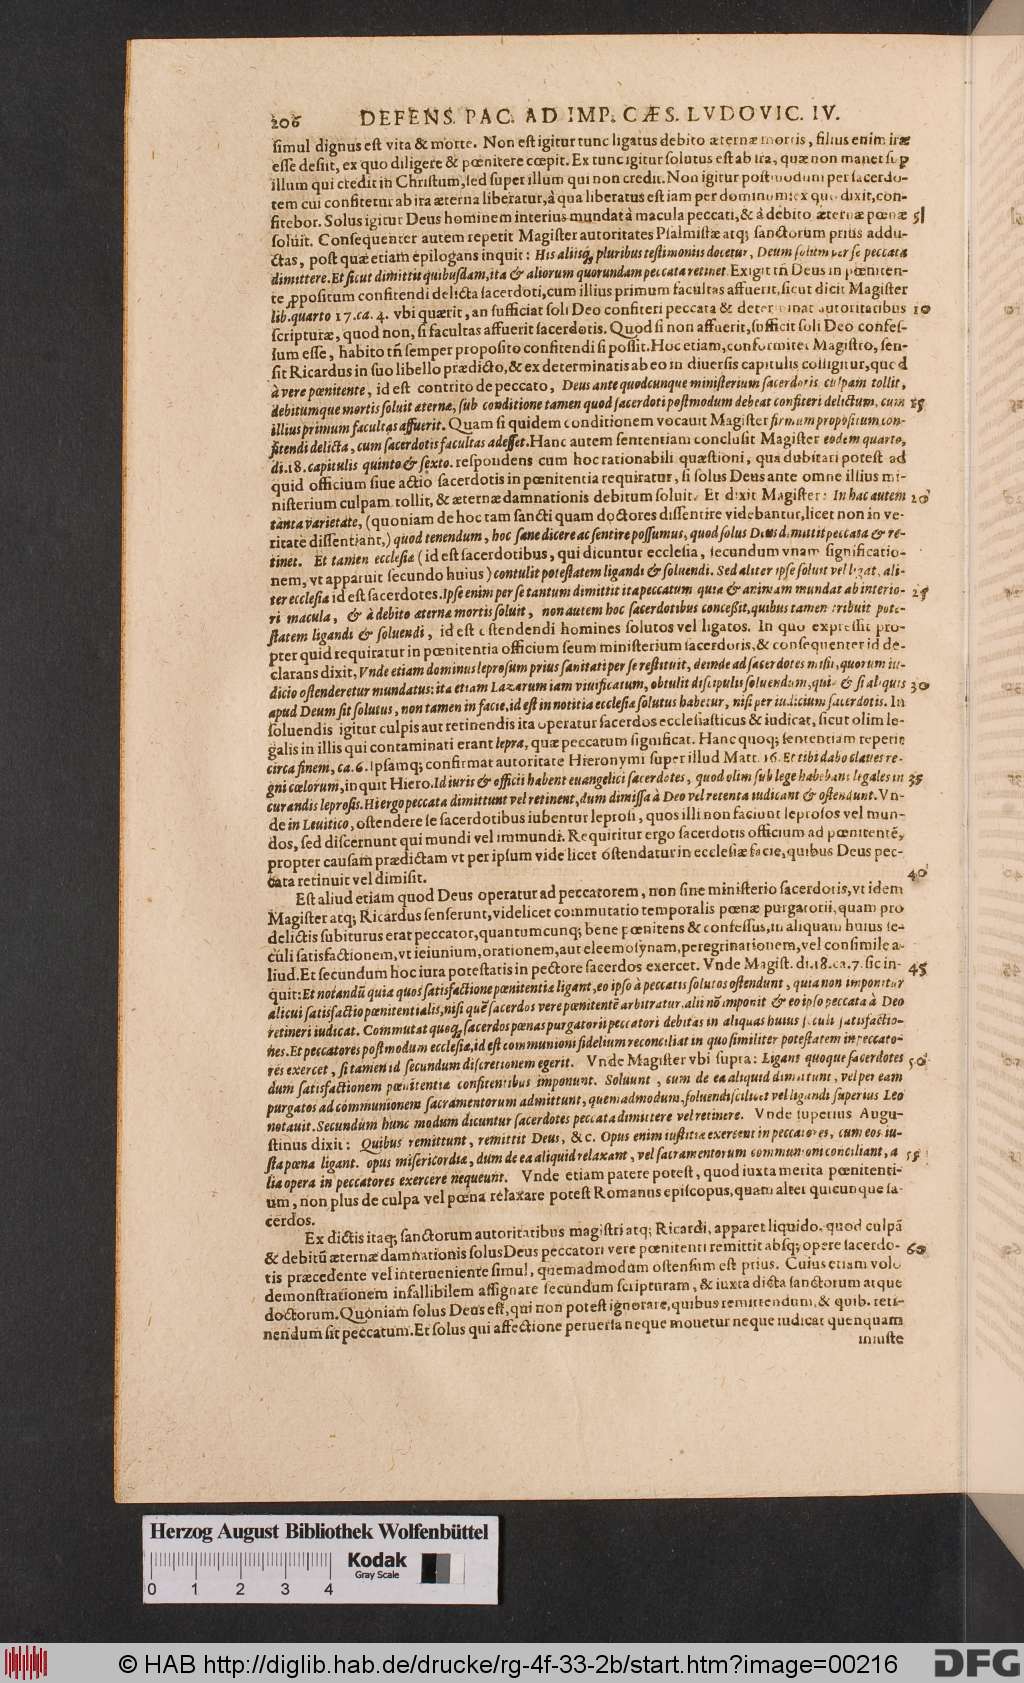 206 DEFENS. PAC. AD IMP. CÆS. LVDOVIC. IV.
simul dignus est vita & morte. Non est igitur tunc ligatus debito æternæ mortis, filius enim iræ
esse desiit, ex quo diligere & pœnitere cœpit. Ex tunc igitur solutus est ab ira, quæ non manet sup
illum qui credit in Christum, sed super illum qui non credit. Non igitur postmodum per sacerdo-
tem cui confitetur ab ira æterna liberatur, à qua liberatus est iam per dominum: ex quo dixit, con-
fitebor. Solus igitur Deus hominem interius mundat à macula peccati, & à debito æternæ pœnæ 5
soluit. Consequenter autem repetit Magister autoritates Psalmistæ atq; sanctorum prius addu-
ctas, post quæ etiam epilogans inquit: His aliisq; pluribus testimoniis docetur, Deum solum per se peccata
dimittere. Et sicut dimittit quibusdam, ita & aliorum quorundam peccata retinet. Exigit tñ Deus in pœniten-
te ppositum confitendi delicta sacerdoti, cum illius primum facultas affuerit, sicut dicit Magister
lib. quarto 17. ca. 4. vbi quærit, an sufficiat soli Deo confiteri peccata & determinat autoritatibus 10
scripturæ, quod non, si facultas affuerit sacerdotis. Quod si non affuerit, sufficit soli Deo confes-
sum esse, habito tñ semper proposito confitendi si possit. Hoc etiam, conformiter Magistro, sen-
sit Ricardus in suo libello prædicto, & ex determinatis ab eo in diuersis capitulis colligitur, quod
à vere pœnitente, id est contrito de peccato, Deus ante quodcunque ministerium sacerdotis culpam tollit,
debitumque mortis soluit æternæ, sub conditione tamen quod sacerdoti postmodum debeat confiteri delictum, cum 15
illius primum facultas affuerit. Quam si quidem conditionem vocauit Magister firmum propositum con-
fitendi delicta, cum sacerdotis facultas adesset. Hanc autem sententiam conclusit Magister eodem quarto,
di. 18. capitulis quinto & sexto. respondens cum hoc rationabili quæstioni, qua dubitari potest ad
quid officium siue actio sacerdotis in pœnitentia requiratur, si solus Deus ante omne illius mi-
nisterium culpam tollit, & æternæ damnationis debitum soluit. Et dixit Magister: In hac autem 20
tanta varietate, (quoniam de hoc tam sancti quam doctores dissentire videbantur, licet non in ve-
ritate dissentiant,) quod tenendum, hoc sane dicere ac sentire possumus, quod solus Deus dimittit peccata & re-
tinet. Et tamen ecclesiæ (id est sacerdotibus, qui dicuntur ecclesia, secundum vnam significatio-
nem, vt apparuit secundo huius) contulit potestatem ligandi & soluendi. Sed aliter ipse soluit vel ligat, ali-
ter ecclesia id est sacerdotes. Ipse enim per se tantum dimittit ita peccatum quia & animam mundat ab interio- 25
ri macula, & à debito æternæ mortis soluit, non autem hoc sacerdotibus concessit, quibus tamen tribuit pote-
statem ligandi & soluendi, id est ostendendi homines solutos vel ligatos. In quo expressit pro-
pter quid requiratur in pœnitentia officium seum ministerium sacerdotis, & consequenter id de-
clarans dixit, Vnde etiam dominus leprosum prius sanitati per se restituit, deinde ad sacerdotes misit, quorum iu-
dicio ostenderetur mundatus: ita etiam Lazarum iam viuificatum, obtulit discipulis soluendum, quia & si aliquis 30
apud Deum sit solutus, non tamen in facie, id est in notitia ecclesiæ solutus habetur, nisi per iudicium sacerdotis. In
soluendis igitur culpis aut retinendis ita operatur sacerdos ecclesiasticus & iudicat, sicut olim le-
galis in illis qui contaminati erant lepra, quæ peccatum significat. Hanc quoq; sententiam repetit
circa finem, ca. 6. Ipsamq; confirmat autoritate Hieronymi super illud Matt. 16. Et tibi dabo claues re-
gni cœlorum, inquit Hiero. Id iuris & officii habent euangelici sacerdotes, quod olim sub lege habebant legales in 35
curandis leprosis. Hi ergo peccata dimittunt vel retinent, dum dimissa à Deo vel retenta iudicant & ostendunt. Vn-
de in Leuitico, ostendere se sacerdotibus iubentur leprosi, quos illi non faciunt leprosos vel mun-
dos, sed discernunt qui mundi vel immundi. Requiritur ergo sacerdotis officium ad pœnitentẽ,
propter causam prædictam vt per ipsum videlicet ostendatur in ecclesiæ facie, quibus Deus pec-
cata retinuit vel dimisit. 40
Est aliud etiam quod Deus operatur ad peccatorem, non sine ministerio sacerdotis, vt idem
Magister atq; Ricardus senserunt, videlicet commutatio temporalis pœnæ purgatorii, quam pro
delictis subiturus erat peccator, quantumcunq; bene pœnitens & confessus, in aliquam huius se-
culi satisfactionem, vt ieiunium, orationem, aut eleemosynam, peregrinationem, vel consimile a-
liud. Et secundum hoc iura potestatis in pectore sacerdos exercet. Vnde Magist. di. 18. ca. 7. sic in- 45
quit: Et notandũ quia quos satisfactione pœnitentiæ ligant, eo ipso à peccatis solutos ostendunt, quia non imponitur
alicui satisfactio pœnitentialis, nisi quẽ sacerdos vere pœnitentẽ arbitratur. alii nõ imponit & eo ipso peccata à Deo
retineri iudicat. Commutat quoq; sacerdos pœnas purgatorii peccatori debitas in aliquas huius seculi satisfactio-
nes. Et peccatores postmodum ecclesiæ, id est communioni fidelium reconciliat in quo similiter potestatem in peccato-
res exercet, si tamen id secundum discretionem egerit. Vnde Magister vbi supra: Ligant quoque sacerdotes 50
dum satisfactionem pœnitentiæ confitentibus imponunt. Soluunt, cum de ea aliquid dimittunt, vel per eam
purgatos ad communionem sacramentorum admittunt, quemadmodum, soluendi scilicet vel ligandi superius Leo
notauit. Secundum hunc modum dicuntur sacerdotes peccata dimittere vel retinere. Vnde superius Augu-
stinus dixit: Quibus remittunt, remittit Deus, &c. Opus enim iustitiæ exercent in peccatores, cum eos iu-
sta pœna ligant. opus misericordiæ, dum de ea aliquid relaxant, vel sacramentorum communioni conciliant, a 55
lia opera in peccatores exercere nequeunt. Vnde etiam patere potest, quod iuxta merita pœnitenti-
um, non plus de culpa vel pœna relaxare potest Romanus episcopus, quam alter quicunque sa-
cerdos.
Ex dictis itaq; sanctorum autoritatibus magistri atq; Ricardi, apparet liquido, quod culpã
& debitũ æternæ damnationis solus Deus peccatori vere pœnitenti remittit absq; opere sacerdo- 60
tis præcedente vel interueniente simul, quemadmodum ostensum est prius. Cuius etiam volo
demonstrationem infallibilem assignare secundum scripturam, & iuxta dicta sanctorum atque
doctorum. Quoniam solus Deus est, qui non potest ignorare, quibus remittendum, & quib. reti-
nendum sit peccatum. Et solus qui affectione peruersa neque mouetur neque iudicat quenquam
iniuste
Herzog August Bibliothek Wolfenbüttel
Kodak
Gray Scale
0 1 2 3 4
© HAB http://diglib.hab.de/drucke/rg-4f-33-2b/start.htm?image=00216
DFG